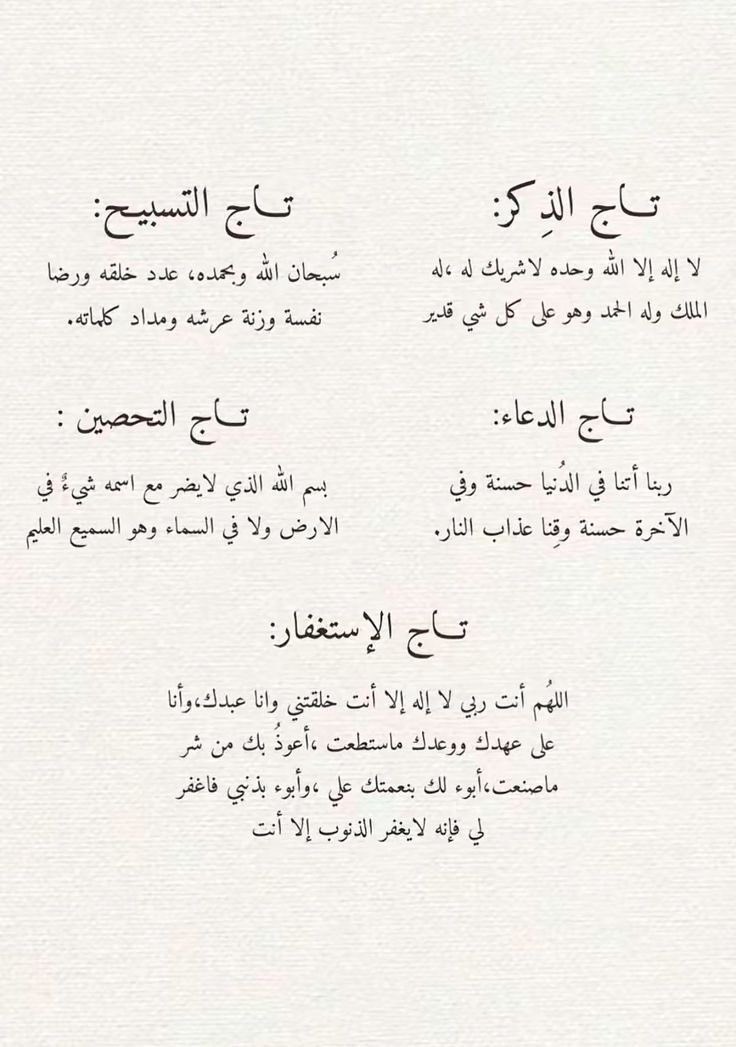 تاج الذِكر:
لا إله إلا الله وحده لاشريك له ،له
الملك وله الحمد وهو على كل شي قدير
تاج التسبيح:
سُبحان الله وبحمده، عدد خلقه ورضا
نفسة وزنة عرشه ومداد كلماته.
تاج الدعاء:
ربنا أتنا في الدُنيا حسنة وفي
الآخرة حسنة وقِنا عذاب النار.
تاج التحصين :
بسم الله الذي لايضر مع اسمه شيءٌ في
الارض ولا في السماء وهو السميع العليم
تاج الإستغفار:
اللهُم أنت ربي لا إله إلا أنت خلقتني وانا عبدك،وأنا
على عهدك ووعدك ماستطعت ،أعوذُ بك من شر
ماصنعت،أبوء لك بنعمتك علي ،وأبوء بذنبي فاغفر
لي فإنه لايغفر الذنوب إلا أنت